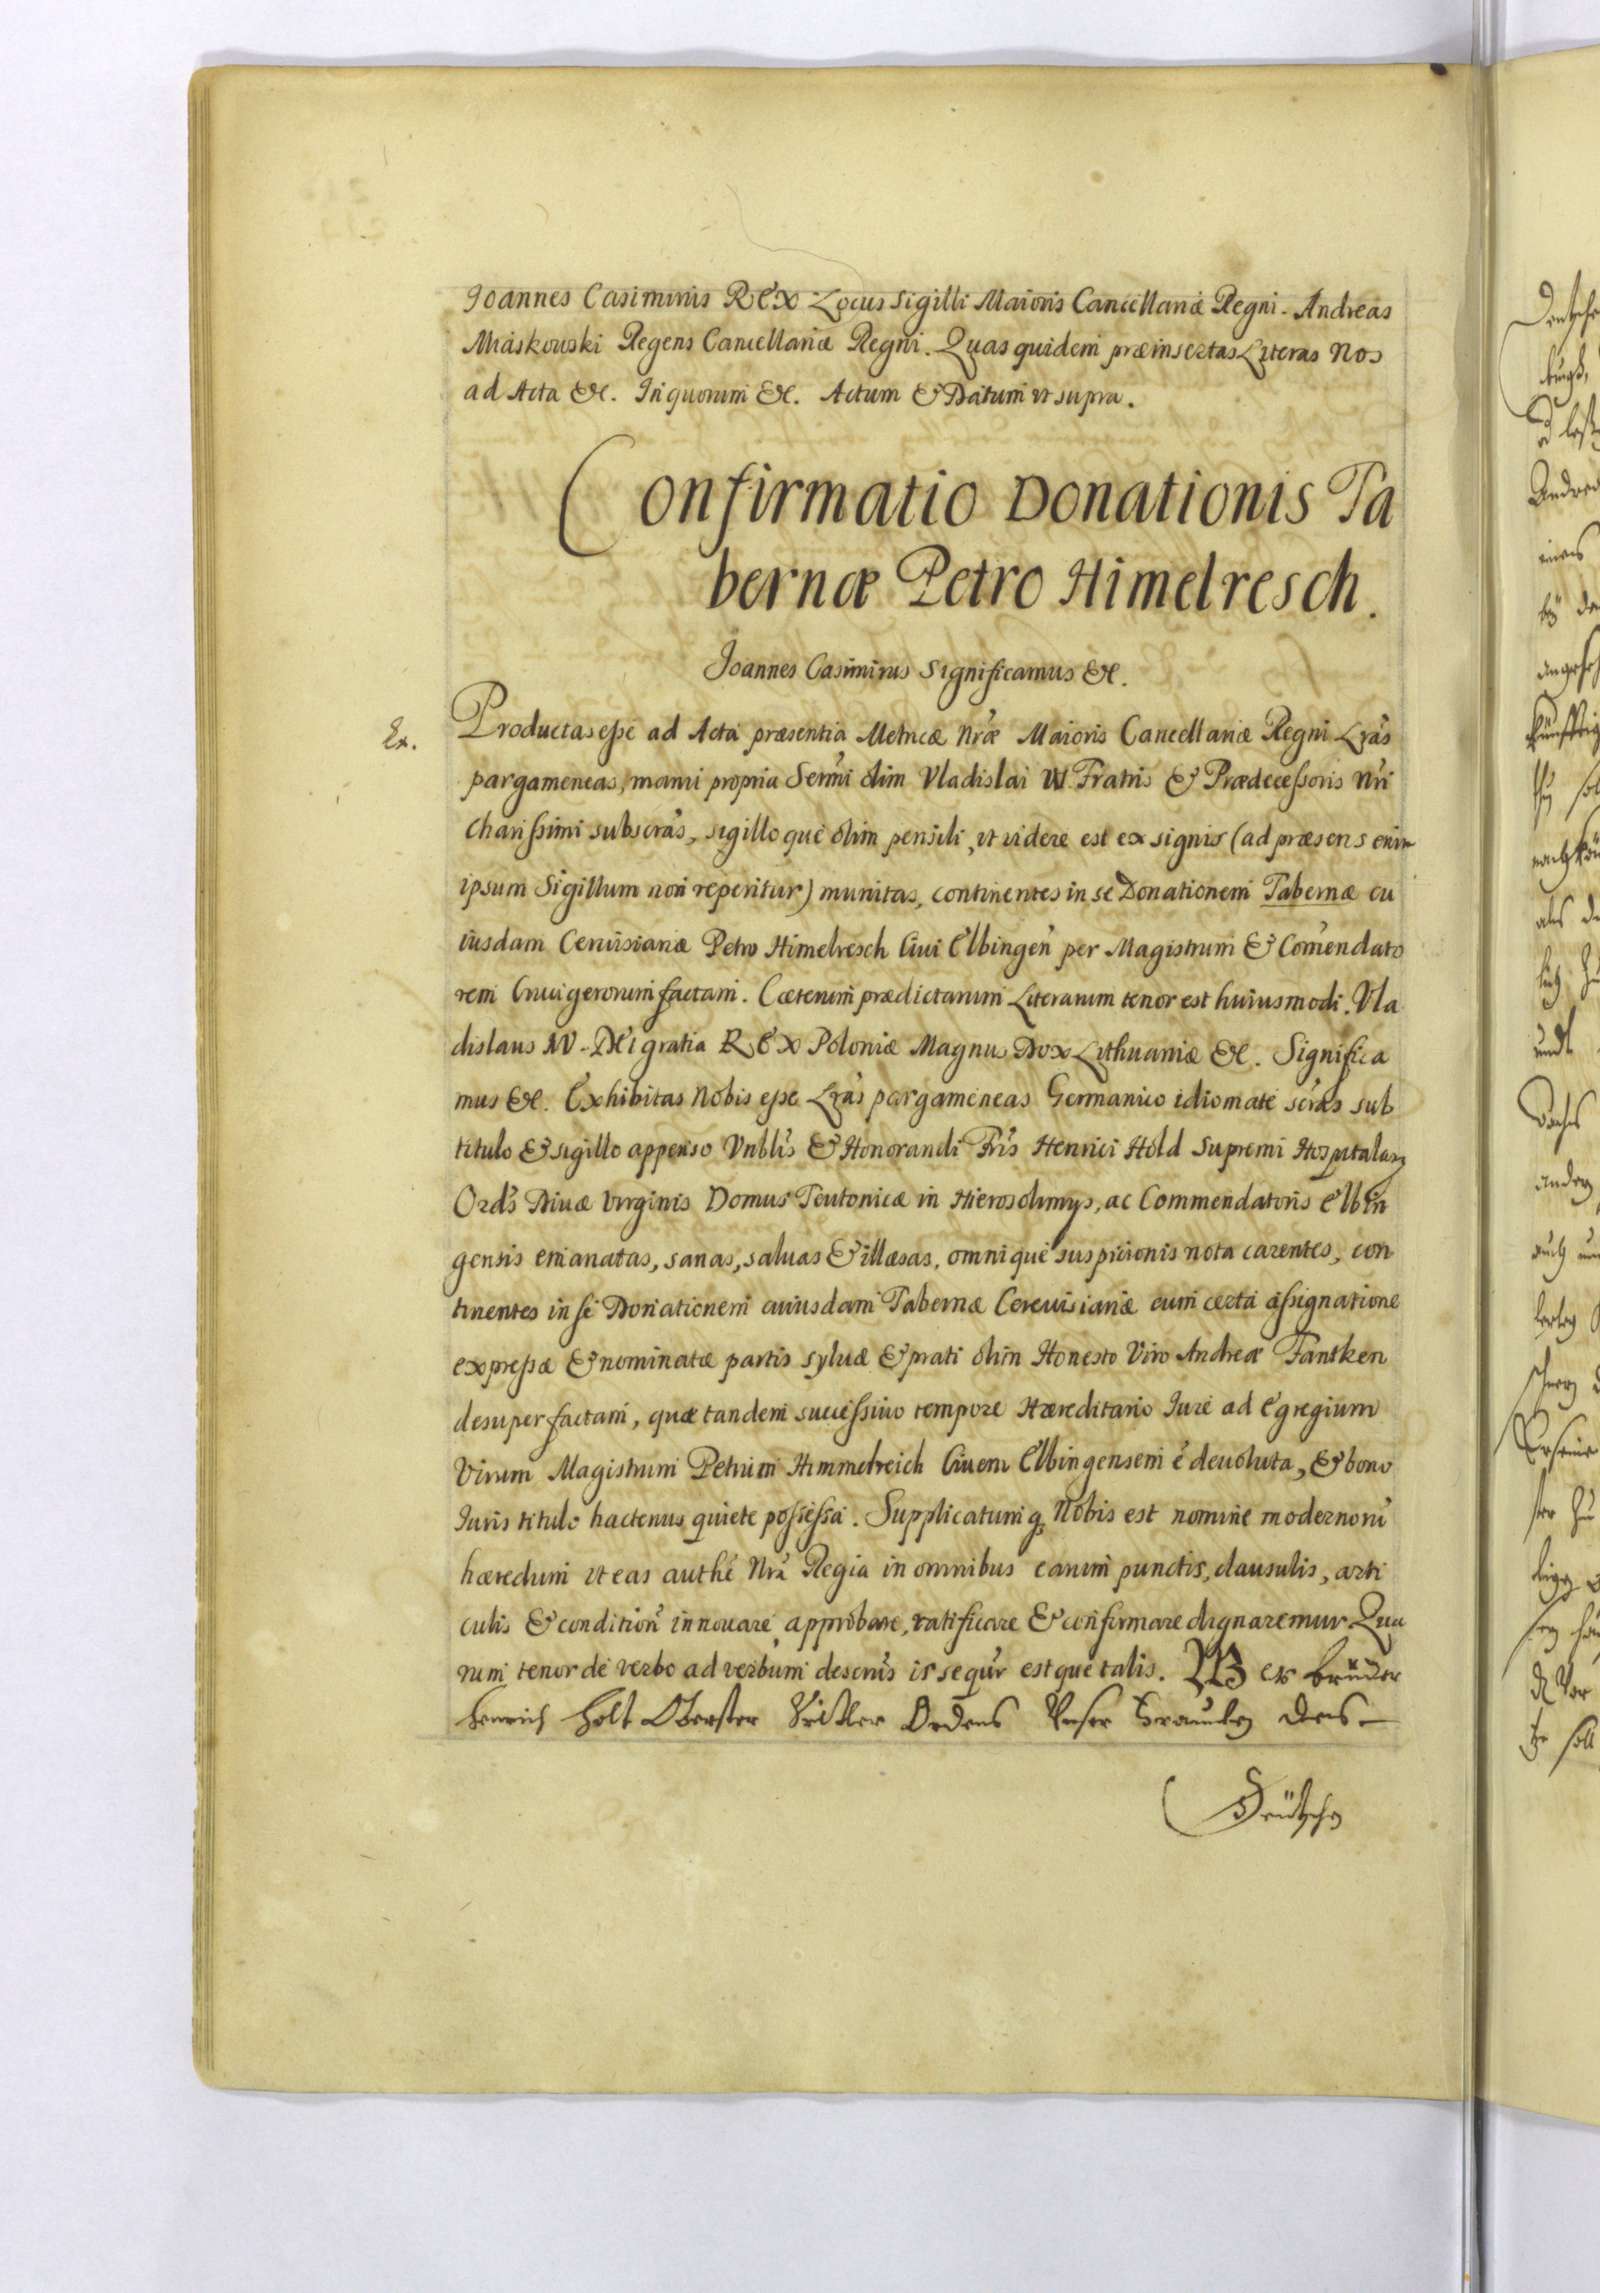 Joannes Casimirus REX Locus Sigilli Maioris Cancellariæ Regni. Andreas
Miaskowski Regens Cancellariæ Regni. Quas quidem præinsertas Literas Nos
ad Acta &c. In quorum &c. Actum & Datum vt supra.
Confirmatio Donationis Ta
bernæ Petro Himelresch.
Joannes Casimirus Significamus &c.
Ex.
Productas esse ad Acta præsentia Metricæ Nræ Maioris Cancellariæ Regni Lras
pargameneas, manu propria Sermi olim Vladislai IV. Fratris & Prædecessoris Nri
Charissimi subscras, sigilloque olim pensili, vt videre est ex signis (ad præsens enim
ipsum Sigillum non reperitur) munitas, continentes in se Donationem Tabernæ cu
iusdam Cerevisianæ Petro Himelresch Ciui Elbingen per Magistrum & Comendato
rem Crucigerorum factam. Cæterum prædictarum Literarum tenor est huiusmodi. Vla
dislaus IV. DEI gratia REX Poloniæ Magnus Dux Lithuaniæ &c. Significa
mus &c. Exhibitas Nobis esse Lras pargameneas Germanico idiomate scras sub
titulo & sigillo appenso Vnblis & Honorandi Fris Henrici Hold Supremi Hospitalarj
Ords Diuæ Virginis Domus Teutonicæ in Hierosolimys, ac Commendatoris Elbin
gensis emanatas, sanas, saluas & illæsas, omnique suspicionis nota carentes, con
tinentes in se Donationem cuiusdam Tabernæ Cereuisianæ cum certa assignatione
expressæ & nominatæ partis syluæ & prati olim Honesto Viro Andreæ Fantken
desuper factam, quæ tandem successiuo tempore Hæreditario Iure ad Egregium
Virum Magistrum Petrum Himmelreich Ciuem Elbingensem e deuoluta, & bono
Iuris titulo hactenus quiete possessa. Supplicatumq Nobis est nomine modernoru
hæredum vt eas authe Nra Regia in omnibus earum punctis, clausulis, arti
culis & condition innouare, approbare, ratificare & confirmare dignaremur. Qua
rum tenor de verbo ad verbum descrus is sequr estque talis. Wer brüder
Henrich Holt Oberster Spitler Ordens Vnser Frauwen des
Deütschen